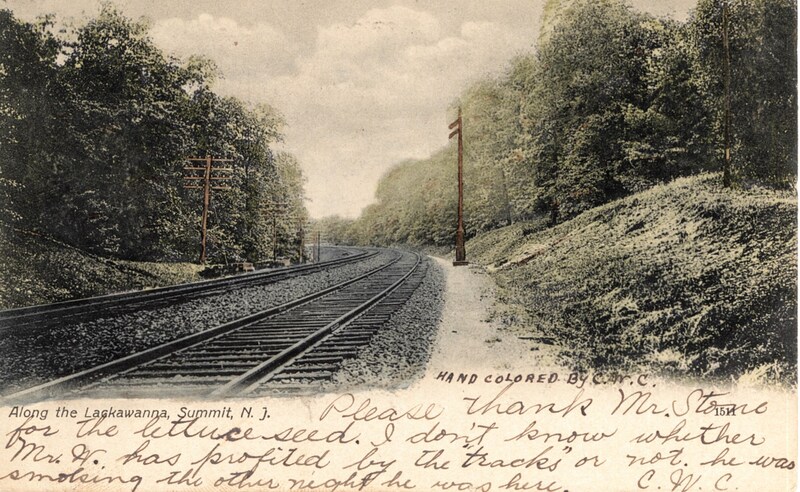 HAND COLORED By C.W.C.
Along the Lackawanna, Summit, N. J.
1511
Please thank Mr. Stone
for the lettuce seed. I don't know whether
Mr. W. has profited by the "tracks" or not. he was
smoking the other night he was here. C.W.C.